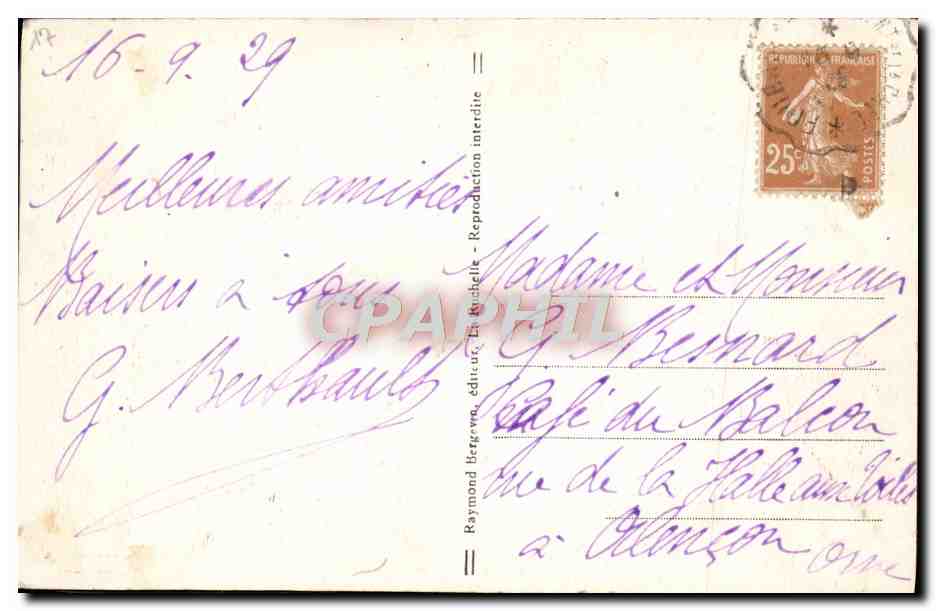 17
16-9-29
Meilleures amitiés
Baisers à tous
G. Berthault
Raymond Bergevin, éditeur, La Rochelle - Reproduction interdite
REPUBLIQUE FRANÇAISE
25c
POSTES
Madame et Monsieur
G. Besnard
Café du Balcon
rue de la Halle aux Toiles
à Alençon Orne
CPAPHIL